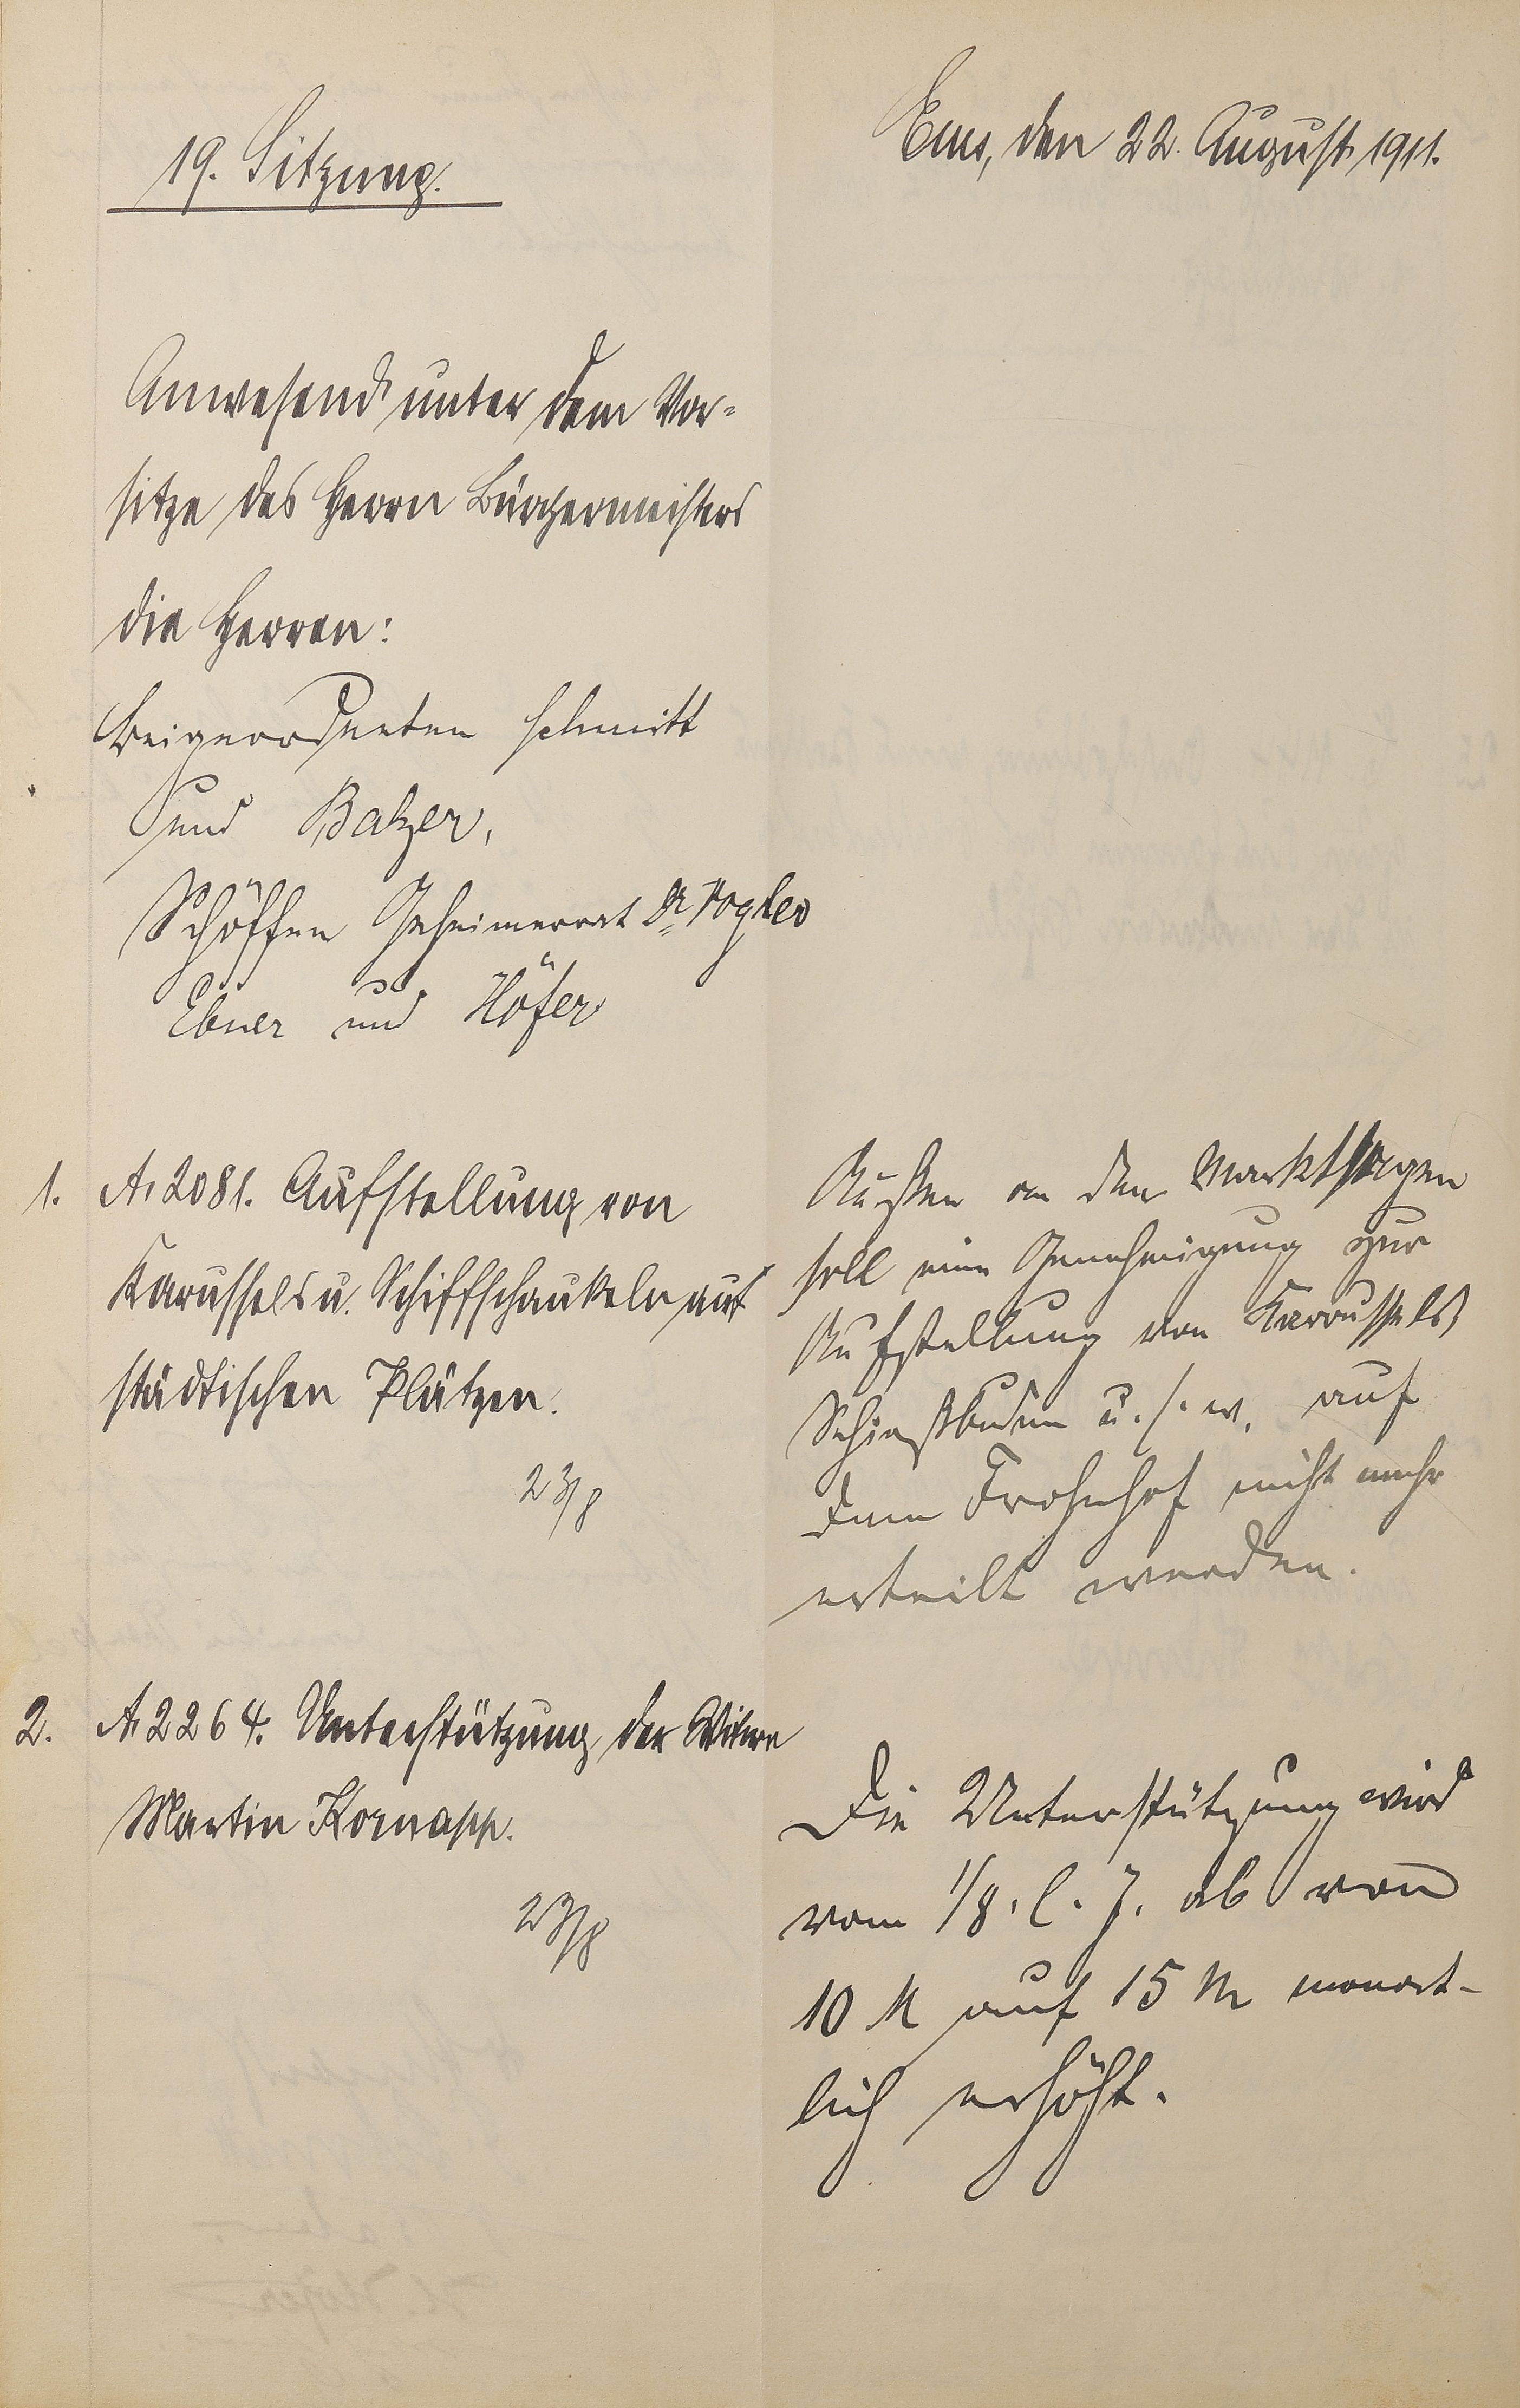 19. Sitzung.
Ems, den 22. August 1911.
Anwesend unter dem Vor-
sitze des Herrn Bürgermeisters
die Herren:
Beigeordneten Schmitt
und Balzer,
Schöffen Geheimerat Dr Vogler
Ebner und Höfer
1. A. 2081. Aufstellung von
Karussels u. Schiffschaukeln auf
städtischen Plätzen.
23/8
Außer an den Markttagen
soll eine Genehmigung zur
Aufstellung von Karoussels,
Schießbuden u. s. w. auf
dem Frohnhof nicht mehr
erteilt werden.
2. A. 2264. Unterstützung der Witwe
Martin Kornapp.
23/8
Die Unterstützung wird
vom 1/8. l. J. ab von
10 M auf 15 M monat-
lich erhöht.